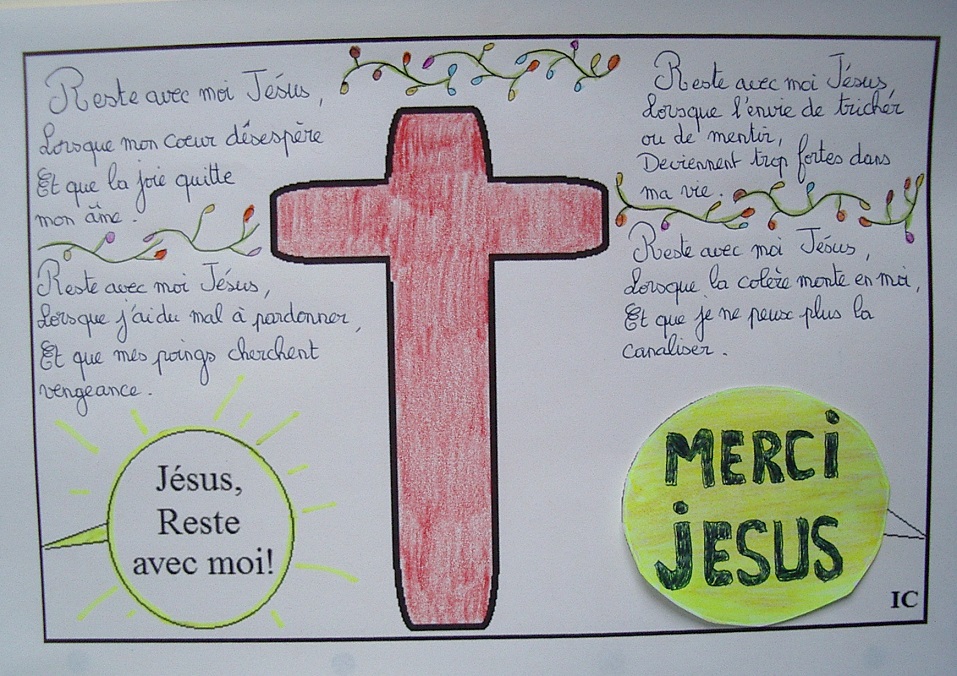 Reste avec moi Jésus,
Lorsque mon cœur désespère
Et que la joie quitte
mon âme.
Reste avec moi Jésus,
Lorsque j'ai du mal à pardonner,
Et que mes poings cherchent
vengeance.
Jésus,
Reste
avec moi!
Reste avec moi Jésus,
Lorsque l'envie de tricher
ou de mentir,
Deviennent trop fortes dans
ma vie.
Reste avec moi Jésus,
Lorsque la colère monte en moi,
Et que je ne peux plus la
canaliser.
MERCi
jESUS
IC